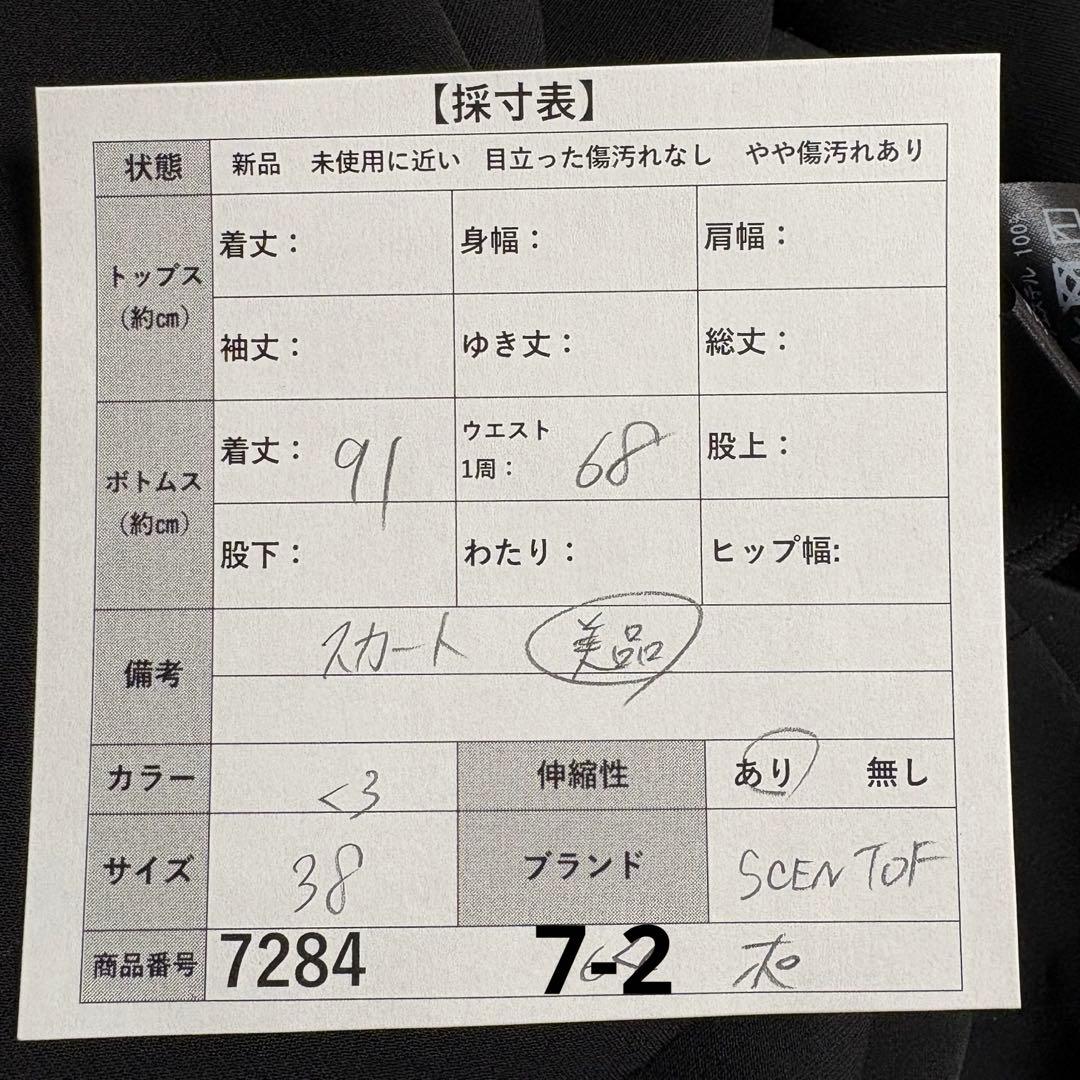 【採寸表】
状態 新品 未使用に近い 目立った傷汚れなし やや傷汚れあり
トップス
(約㎝)
着丈： 身幅： 肩幅：
袖丈： ゆき丈： 総丈：
ボトムス
(約㎝)
着丈： 91 ウエスト
1周： 68 股上：
股下： わたり： ヒップ幅:
備考 スカート 美品
カラー くろ 伸縮性 あり 無し
サイズ 38 ブランド SCEN TOF
商品番号 7284 7-2 ポ
ステル 100%